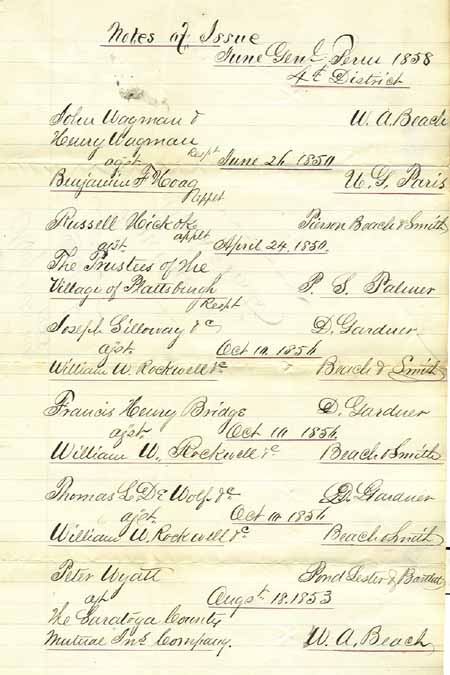 Notes of Issue
June Genl Term 1858
4th District
John Wagman & W. A. Beach
Henry Wagman
agst. Respt June 26 1850
Benjamin F Hoag U. G. Paris
Applt
Russell Hickok Pierson Beach & Smith
agst. applt April 24. 1850.
The Trustees of the
Village of Plattsburgh P. S. Palmer
Respt
Joseph Gilloway &c D. Gardner
agst. Oct 1856
William W. Rockwell &c Beach & Smith
Francis Henry Bridge D. Gardner
agst. Oct 1856
William W. Rockwell &c Beach & Smith
Thomas L. De Wolf &c D. Gardner
agst. Oct 1856
William W. Rockwell &c Beach & Smith
Peter Wyatt Pond Lester & Bartlett
agt Augst 18. 1853
The Saratoga County
Mutual Ins Company. W. A. Beach